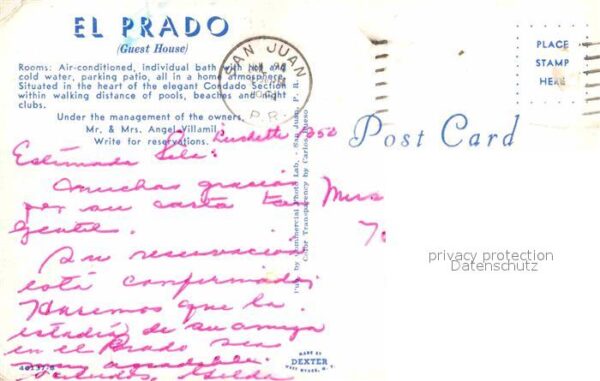 EL PRADO
(Guest House)
Rooms: Air-conditioned, individual bath with hot and
cold water, parking patio, all in a home atmosphere.
Situated in the heart of the elegant Condado Section
within walking distance of pools, beaches and night
clubs.
Under the management of the owners,
Mr. & Mrs. Angel Villamil
Write for reservations.
SAN JUAN
P.R.
PLACE
STAMP
HERE
Post Card
Estimada
Muchas gracias
por su carta tan
gentil.
Su reservación
está confirmada.
Haremos que la
estadía de su amiga
en el Prado sea
muy agradable.
Saludos, Gilda
Pub. by Commercial Photo Lab. - San Juan, P. R.
Color Transparency by Carlos
MADE BY
DEXTER
WEST NYACK, N. Y.
privacy protection
Datenschutz